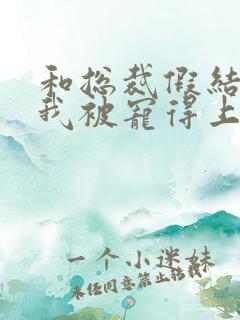 和总裁假结
我被宠得上
一个小迷妹
未经同意禁止转载